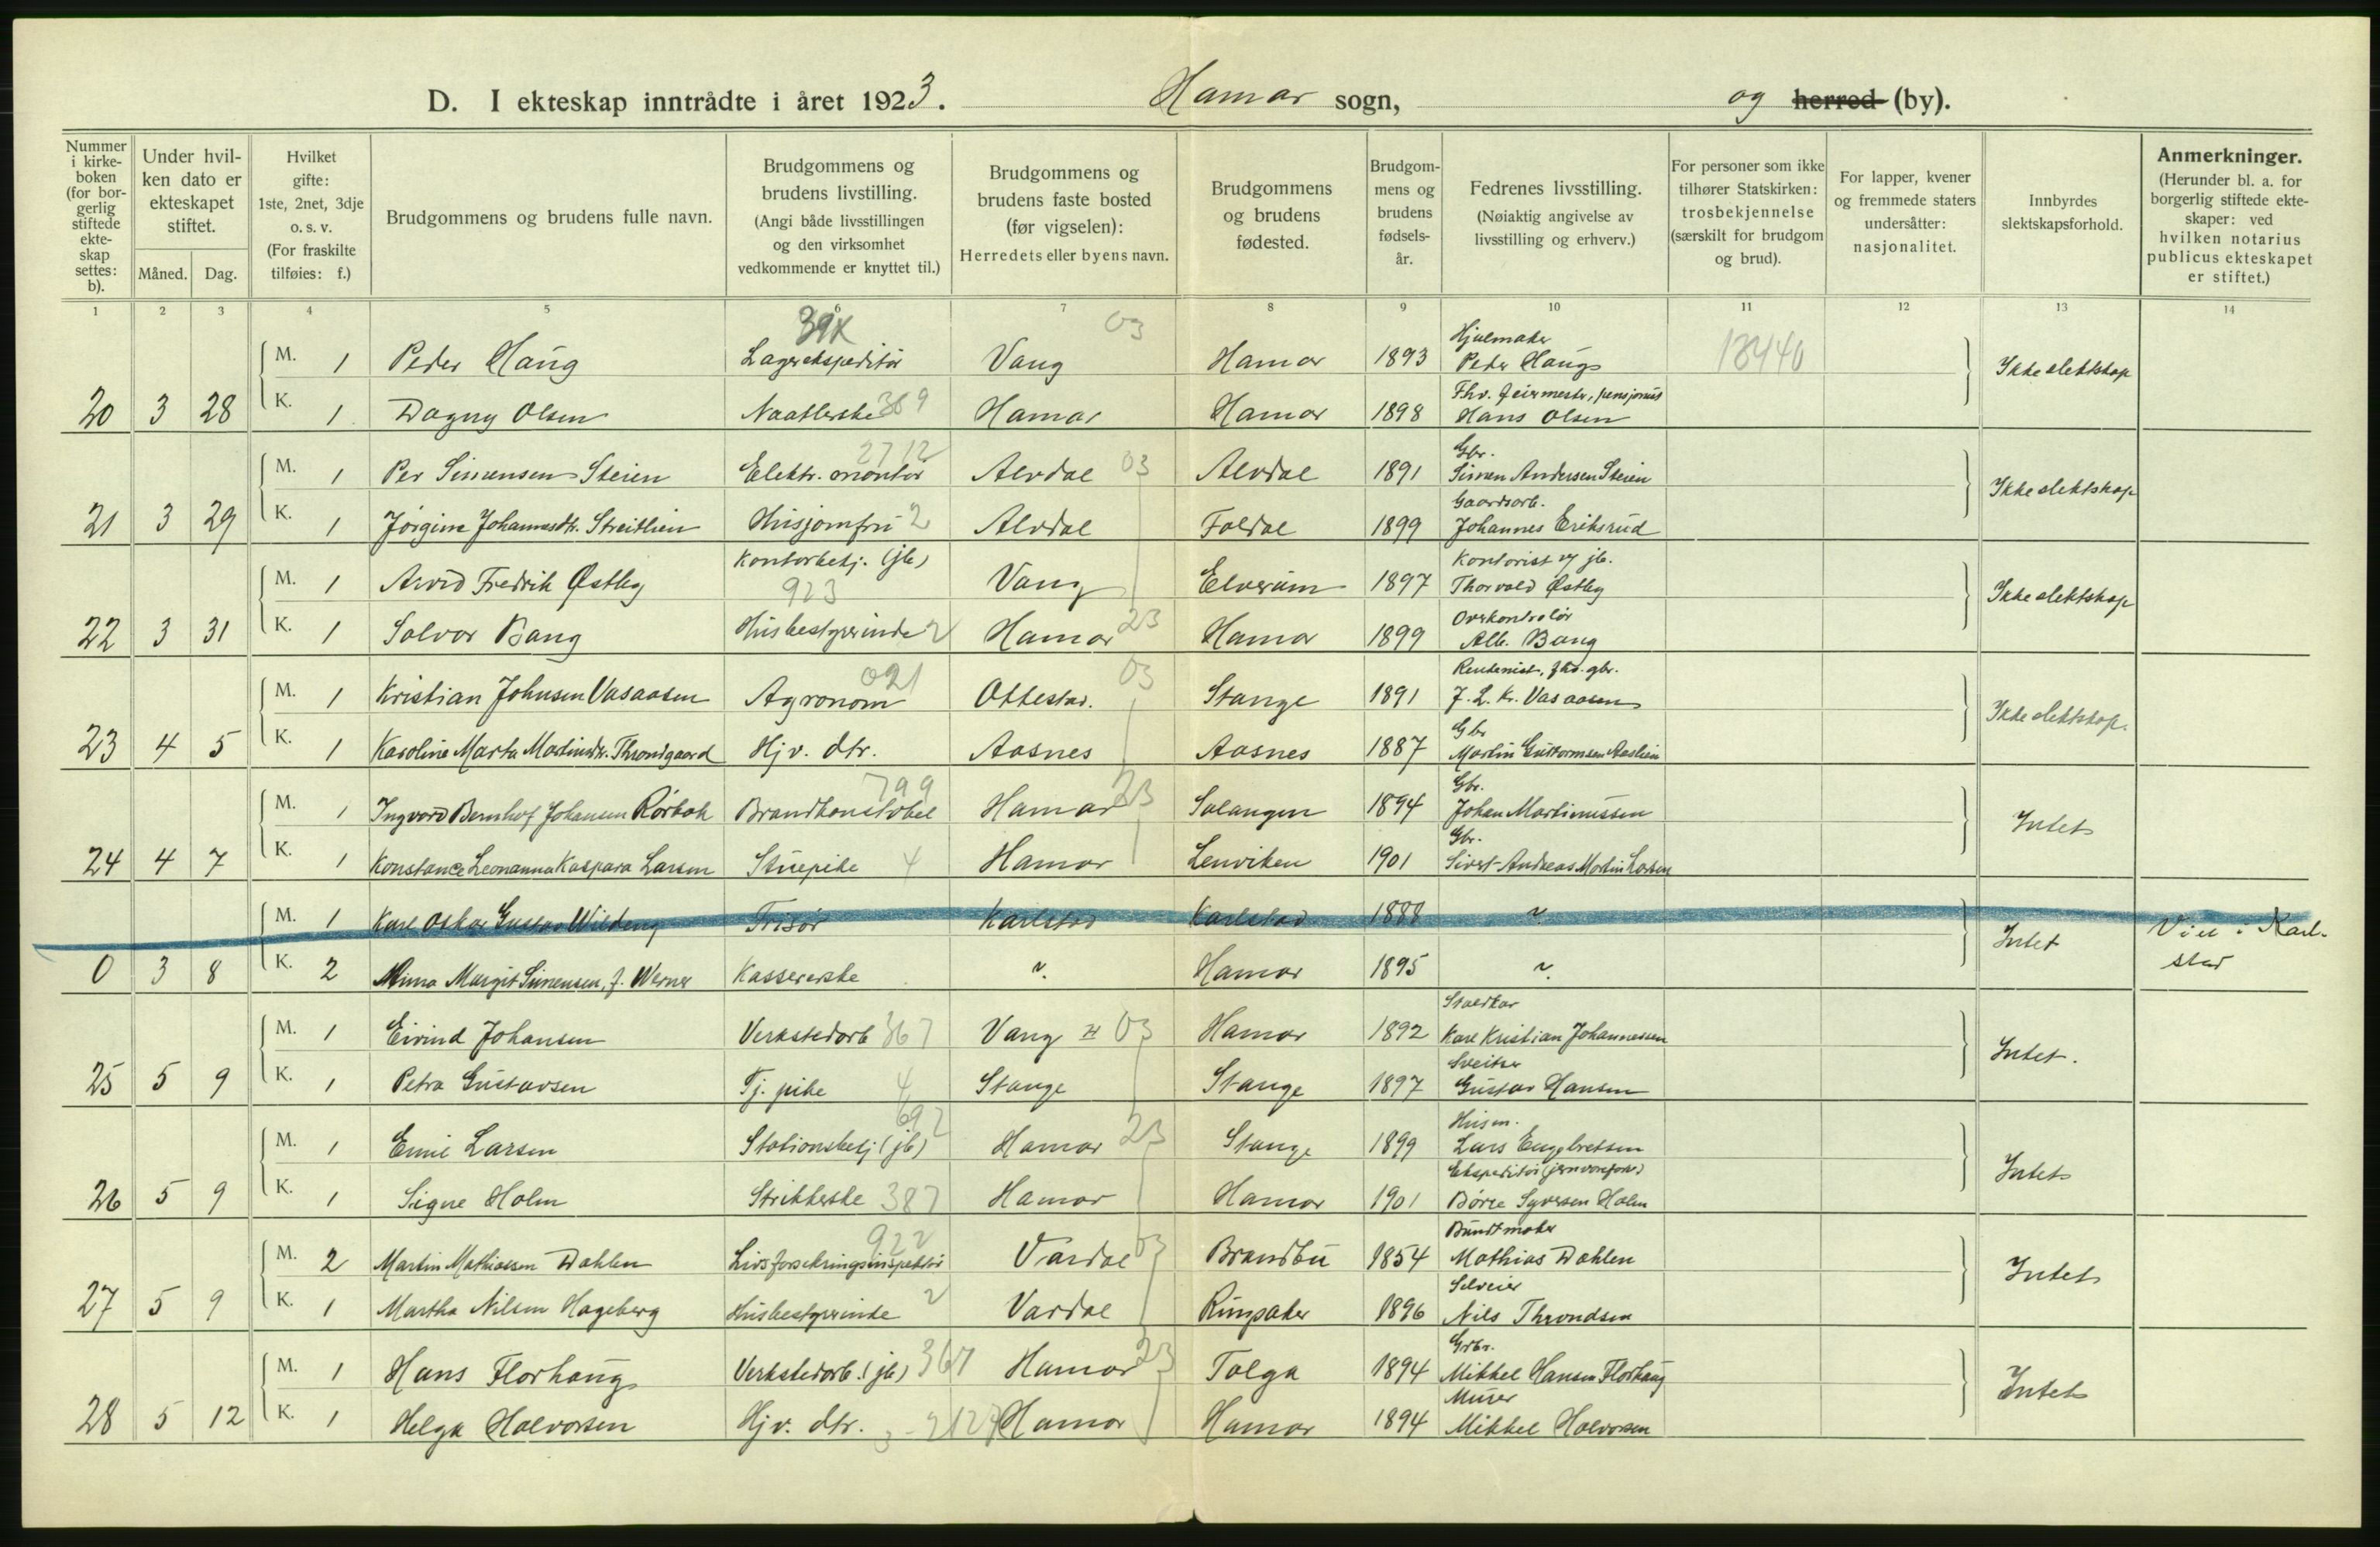 D. I ekteskap inntrådte i året 1923. Hamar sogn, og herred (by).
Nummer i kirkeboken (for borgerlig stiftede ekteskap settes: b).
Under hvilken dato er ekteskapet stiftet.
Måned. Dag.
Hvilket gifte: 1ste, 2net, 3dje o. s. v. (For fraskilte tilføies: f.)
Brudgommens og brudens fulle navn.
Brudgommens og brudens livstilling. (Angi både livsstillingen og den virksomhet vedkommende er knyttet til.)
Brudgommens og brudens faste bosted (før vigselen): Herredets eller byens navn.
Brudgommens og brudens fødested.
Brudgommens og brudens fødsels-år.
Fedrenes livsstilling. (Nøiaktig angivelse av livsstilling og erhverv.)
For personer som ikke tilhører Statskirken: trosbekjennelse (særskilt for brudgom og brud).
For lapper, kvener og fremmede staters undersåtter: nasjonalitet.
Innbyrdes slektskapsforhold.
Anmerkninger. (Herunder bl. a. for borgerlig stiftede ekteskaper: ved hvilken notarius publicus ekteskapet er stiftet.)
1 2 3 4 5 6 7 8 9 10 11 12 13 14
39K 03 Hjulmaker
M. 1 Peder Haug Lagerekspeditør Vang Hamar 1893 Peder Haug 18440 Ikke slektskap
Fhv. feiermestr, pensjonist
20 3 28 K. 1 Dagny Olsen Naatlerske 369 Hamar Hamar 1898 Hans Olsen
2712 Gbr.
M. 1 Per Simensen Steien Elektr. montør Alvdal 03 Alvdal 1891 Simen Andersen Steien Ikke slektskap
Gaardsarb.
21 3 29 K. 1 Jørgine Johannesdtr. Streitlien Husjomfru 2 Alvdal Foldal 1899 Johannes Eriksrud
Kontorbetj. (jb) Kontorist v/ jb.
M. 1 Arvid Fredrik Østby 923 Vang Elverum 1897 Thorvald Østby Ikke slektskap
Overkontrolør
22 3 31 K. 1 Solvor Bang Husbestyrerinde 2 Hamar 23 Hamar 1899 Alb. Bang
021 03 Rentenist, fhv. gbr.
M. 1 Kristian Johnsen Vasaasen Agronom Ottestad. Stange 1891 J. L. Kr. Vasaasen Ikke slektskap.
Gbr
23 4 5 K. 1 Karoline Marta Martinsdtr. Throndgaard Hjv. dtr. Aasnes Aasnes 1887 Martin Guttormsen Aaslien
799 Gbr.
M. 1 Ingvard Bernhof Johansen Rørbak Brandkonstabel Hamar 23 Salangen 1894 Johan Martinussen Intet
Gbr.
24 4 7 K. 1 Konstance Leonanna Kaspara Larsen Stuepike 4 Hamar Lenviken 1901 Sivert Andreas Martin Larsen
M. 1 Karl Oskar Gustav Wildeng Frisør Karlstad Karlstad 1888 ~ Intet Viet i Karlstad
0 3 8 K. 2 Mina Margit Simensen, f. Werner Kassererske ~. Hamar 1895 ~.
Staldkar
M. 1 Eivind Johansen Verkstedarb 367 Vang H 03 Hamar 1892 Karl Kristian Johannessen Intet.
Sveitser
25 5 9 K. 1 Petra Gustavsen Tj. pike 4 Stange Stange 1897 Gustav Hansen
692 Husm.
M. 1 Emil Larsen Stationsbetj (jb) Hamar 23 Stange 1899 Lars Engebretsen Intet
Ekspeditør (jernvareforr.)
26 5 9 K. 1 Signe Holm Strikkerske 387 Hamar Hamar 1901 Børre Syversen Holm
922 Buntmaker
M. 2 Martin Mathiassen Dahlen Livsforsikringsinspektør Vardal 03 Brandbu 1854 Mathias Dahlen Intet
Selveier
27 5 9 K. 1 Martha Nilsen Hageberg Husbestyrerinde 2 Vardal Ringsaker 1896 Nils Throndsen
Grbr.
M. 1 Hans Florhaug Verkstedarb. (jb) 367 Hamar 23 Tolga 1894 Mikkel Hansen Florhaug Intet
Murer
28 5 12 K. 1 Helga Halvorsen Hjv. dtr. Hamar Hamar 1894 Mikkel Halvorsen